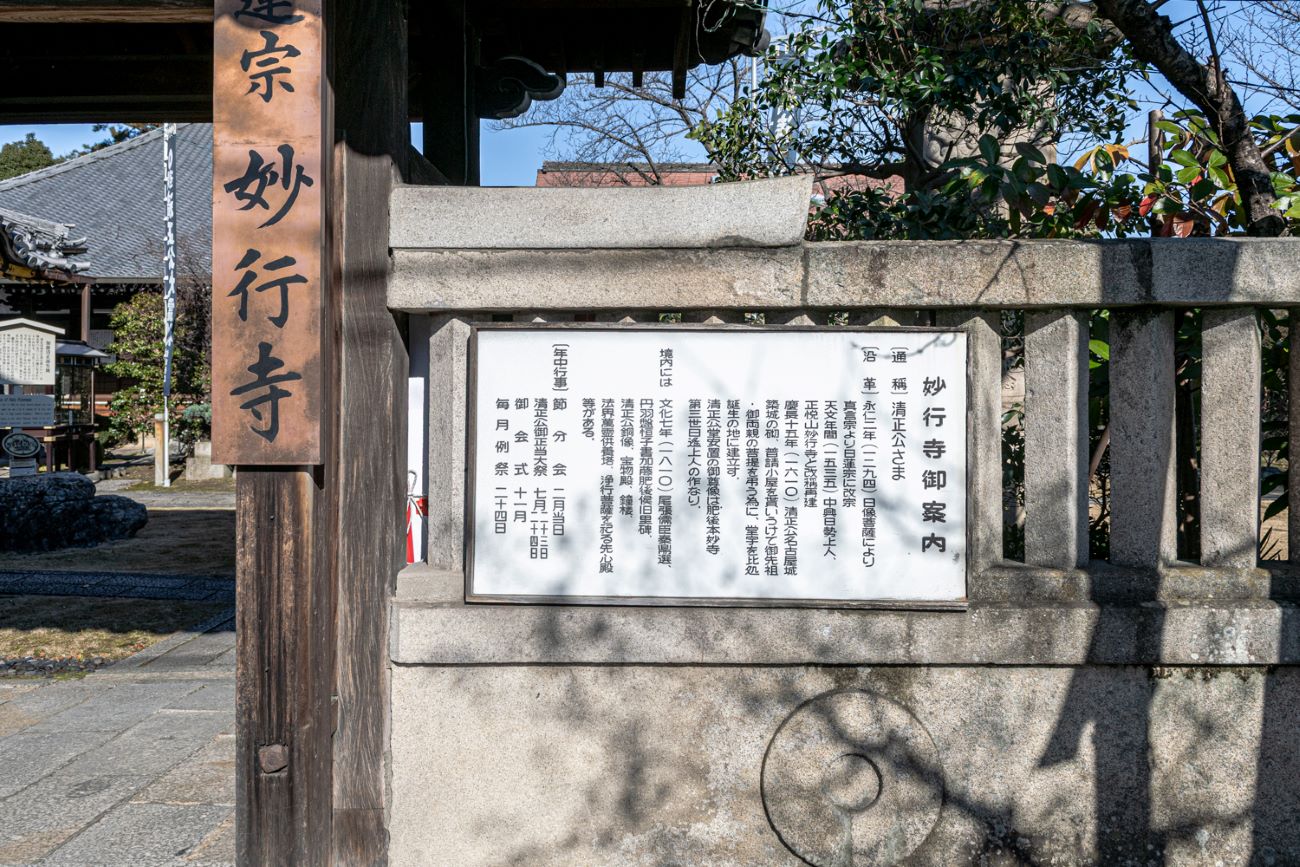 蓮宗 妙行寺
妙行寺御案内
〔通 称〕清正公さま
〔沿 革〕永仁二年(一二九四)日像菩薩により
真言宗より日蓮宗に改宗
天文年間(一五三五)中興日勢上人、
正悦山妙行寺と改稱再建
慶長十五年(一六一〇)清正公名古屋城
築城の砌、普請小屋を貰いうけて御先祖
・御両親の菩提を弔う為に、堂宇を此処
誕生の地に建立す。
清正公堂安置の御尊像は肥後本妙寺
第三世日遙上人の作なり。
境内には 文化七年(一八一〇)尾張儒臣秦鼎選、
丹羽盤桓子書加藤肥後候旧里碑、
清正公銅像、宝物殿、鐘楼、
法界萬霊供養塔、浄行菩薩を祀る先心殿
等がある。
〔年中行事〕節分会 二月当日
清正公御正当大祭 七月二十三日 二十四日
御会式 十一月
毎月例祭 二十四日